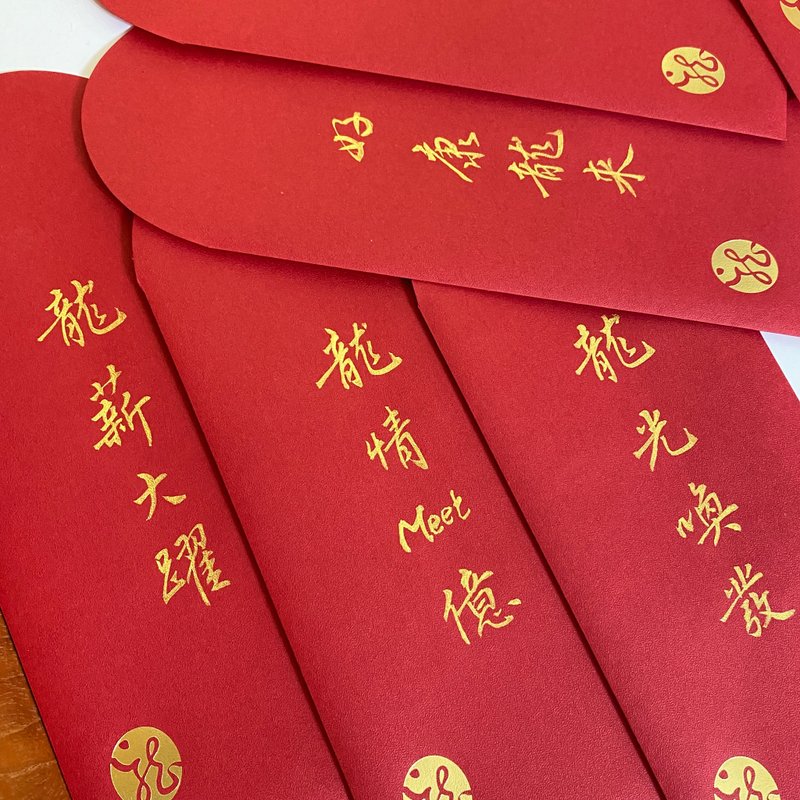 好康龍來
龍薪大躍
龍情Meet億
龍光喚發